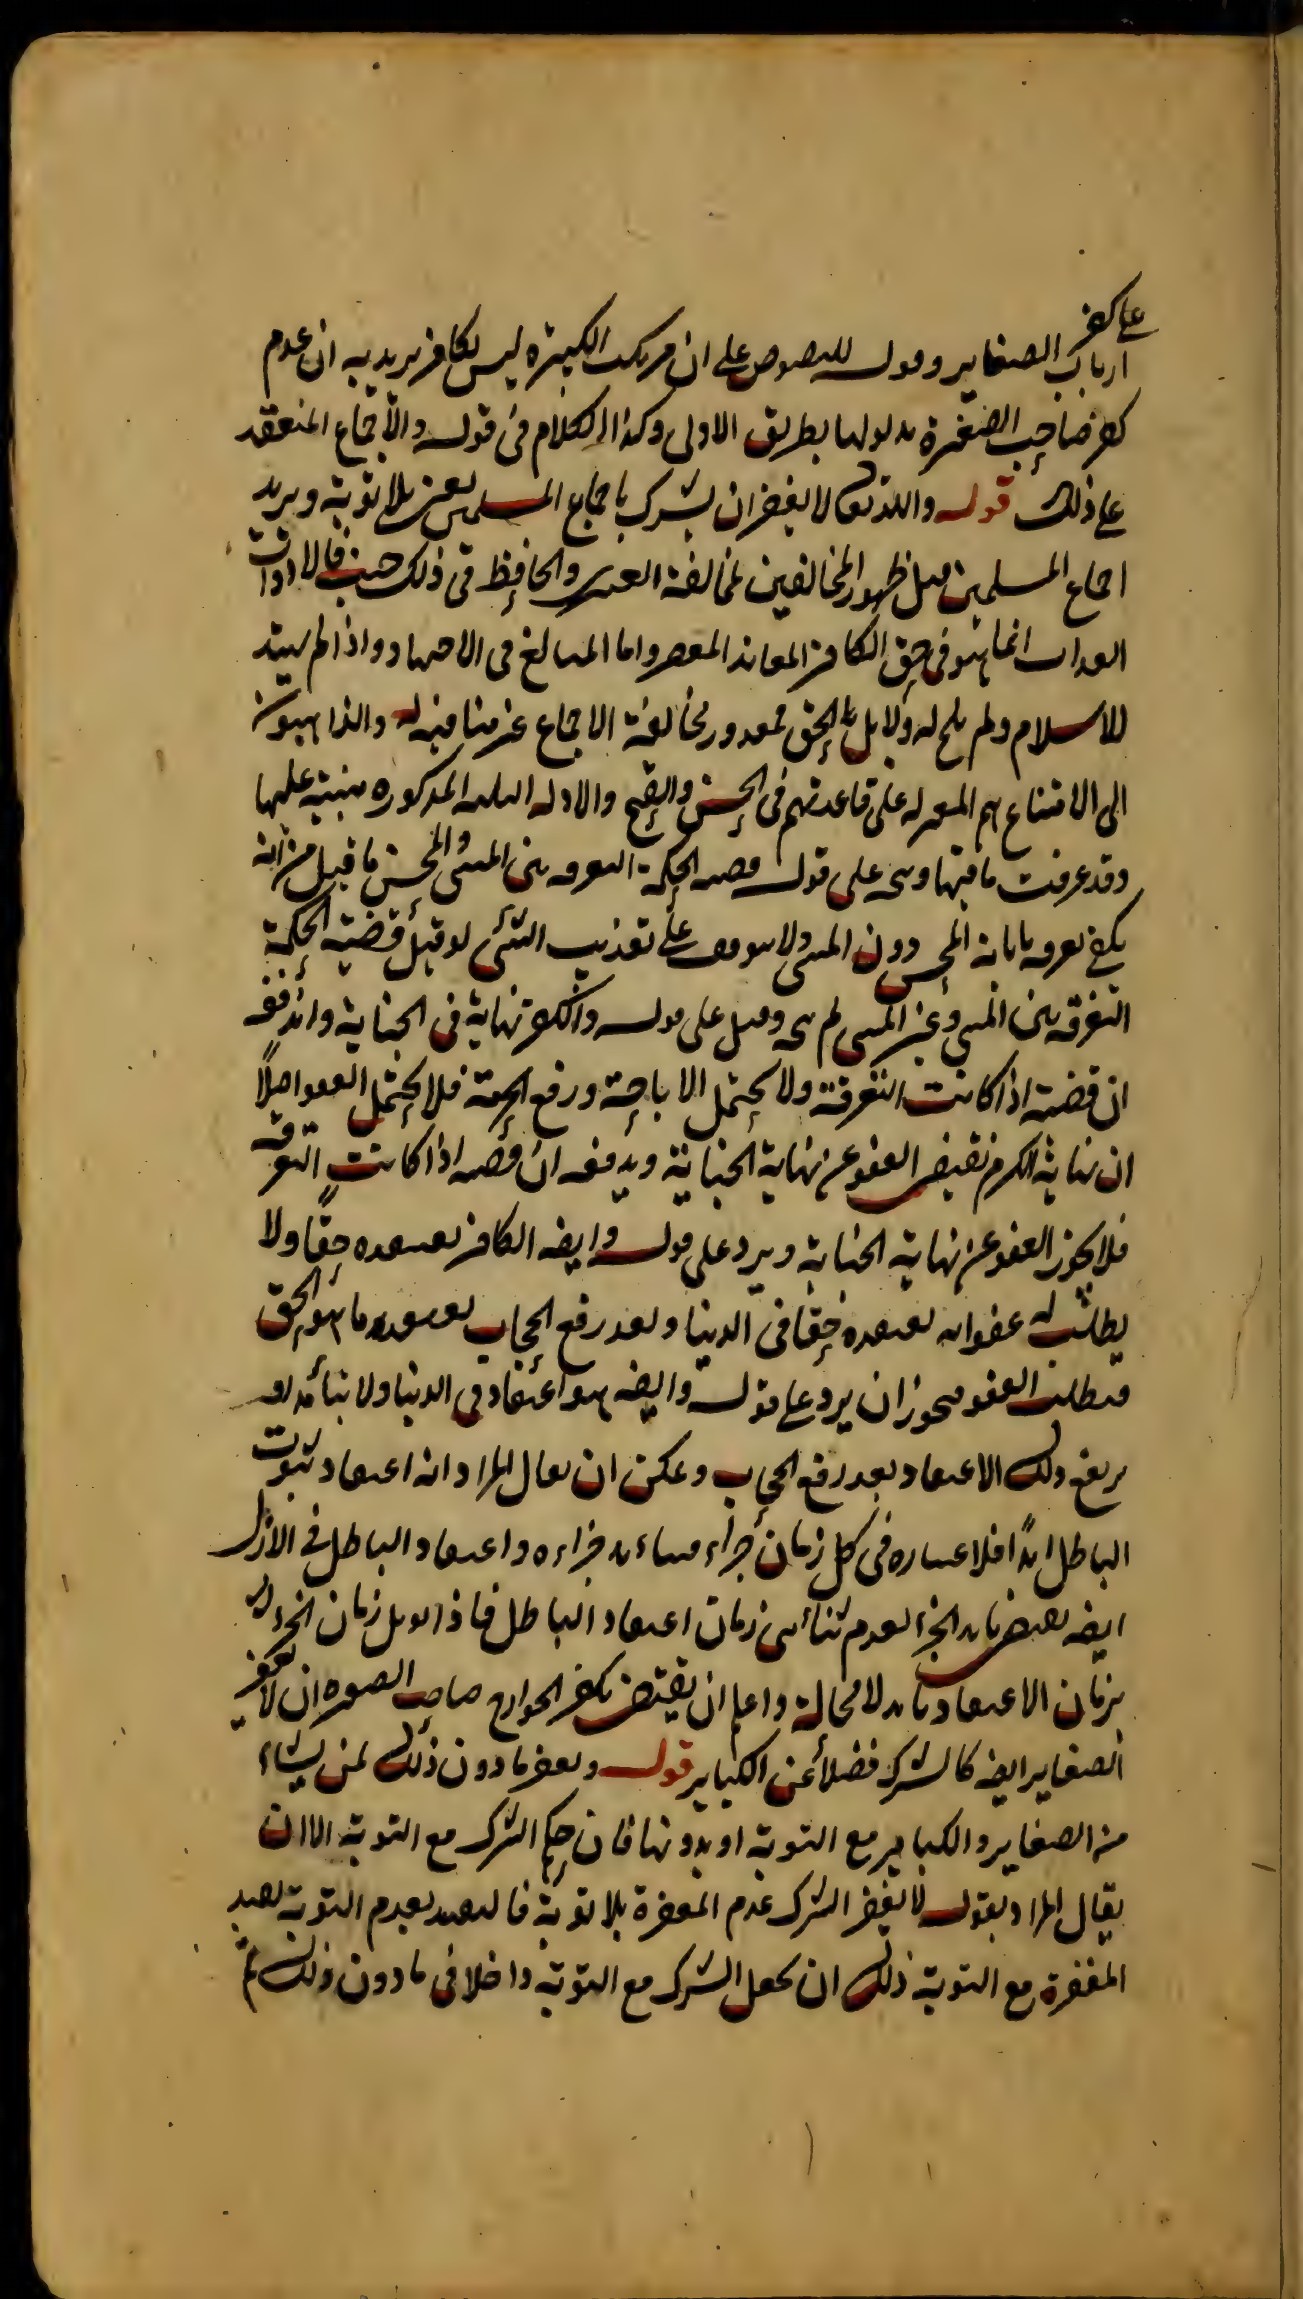 على كفر
ارباب الصغاير وقوله للنصوص على ان مرتكب الكبيرة ليس بكافر يريد به ان عدم
كفر صاحب الصغيرة مدلولها بطريق الاولى وكذا الكلام في قوله والاجماع المنعقد
على ذلك قوله والله تعالى لا يغفر ان يشرك باجماع المسلمين يعنى بلا توبة ويريد
اجماع المسلمين قبل ظهور المخالفين لمخالفة العنبرى والجاحظ في ذلك حيث قالا
العذاب انما هو في حق الكافر المعاند المقصر واما المبالغ في الاجتهاد واذا لم يهتد
للاسلام ولم يلح له دلايل الحق فمعذور ومخالفة الاجماع غير منافية له والذاهبون
الى الامتناع هم المعتزلة على قاعدتهم في الحسن والقبح والادلة الثلثة المذكورة مبنية عليها
وقد عرفت ما فيها ويرد على قوله قضية الحكمة التفرقة بين المسئ والمحسن ما قيل من انه
يكفي تفرقة باثابة المحسن دون المسئ ولا يتوقف على تعذيب المسئ لو قيل قضية الحكمة
التفرقة بين المسئ وغير المسئ لم يرد وقيل على قوله والكفر نهاية في الجناية
ان قضية اذا كانت التفرقة ولا يحتمل الاباحة ورفع الحرمة فلا يحتمل العفو اصلاً
ان نهاية الكرم تقتضى العفو عن نهاية الجناية ويدفعه ان قضية اذا كانت التفرقة
فلا يجوز العفو عن نهاية الجناية ويرد على قوله وايضه الكافر يعتقده حقًا ولا
يطلب له عفوا انه يعتقده حقا في الدنيا وبعد رفع الحجاب يعتقد ما هو الحق
فيطلب العفو ويجوز ان يرد على قوله وايضه هو اعتقاد في الدنيا ولا
يرفع ذلك الاعتقاد بعد رفع الحجاب ويمكن ان يقال المراد انه اعتقاد ثبوت
الباطل ابدًا فلاعتباره في كل زمان جزاء جزاءه واعتقاد الباطل في الازل
ايضه يقتضى الجزاء لعدم تناهى زمان اعتقاد الباطل فاذا قوبل زمان الجزاء
بزمان الاعتقاد لا محالة واعلم ان يقتضى تكفير الخوارج صاحب الصغيرة ان لا يغفر
الصغاير ايضه كالشرك فضلاً عن الكباير قوله ويغفر ما دون ذلك لمن يشاء
من الصغاير والكباير مع التوبة او بدونها فان حكم الشرك مع التوبة الا ان
يقال المراد بقوله لا يغفر الشرك عدم المغفرة بلا توبة فالتقييد بعدم التوبة يفيد
المغفرة مع التوبة ذلك ان يجعل الشرك مع التوبة داخلا في ما دون ذلك ثم